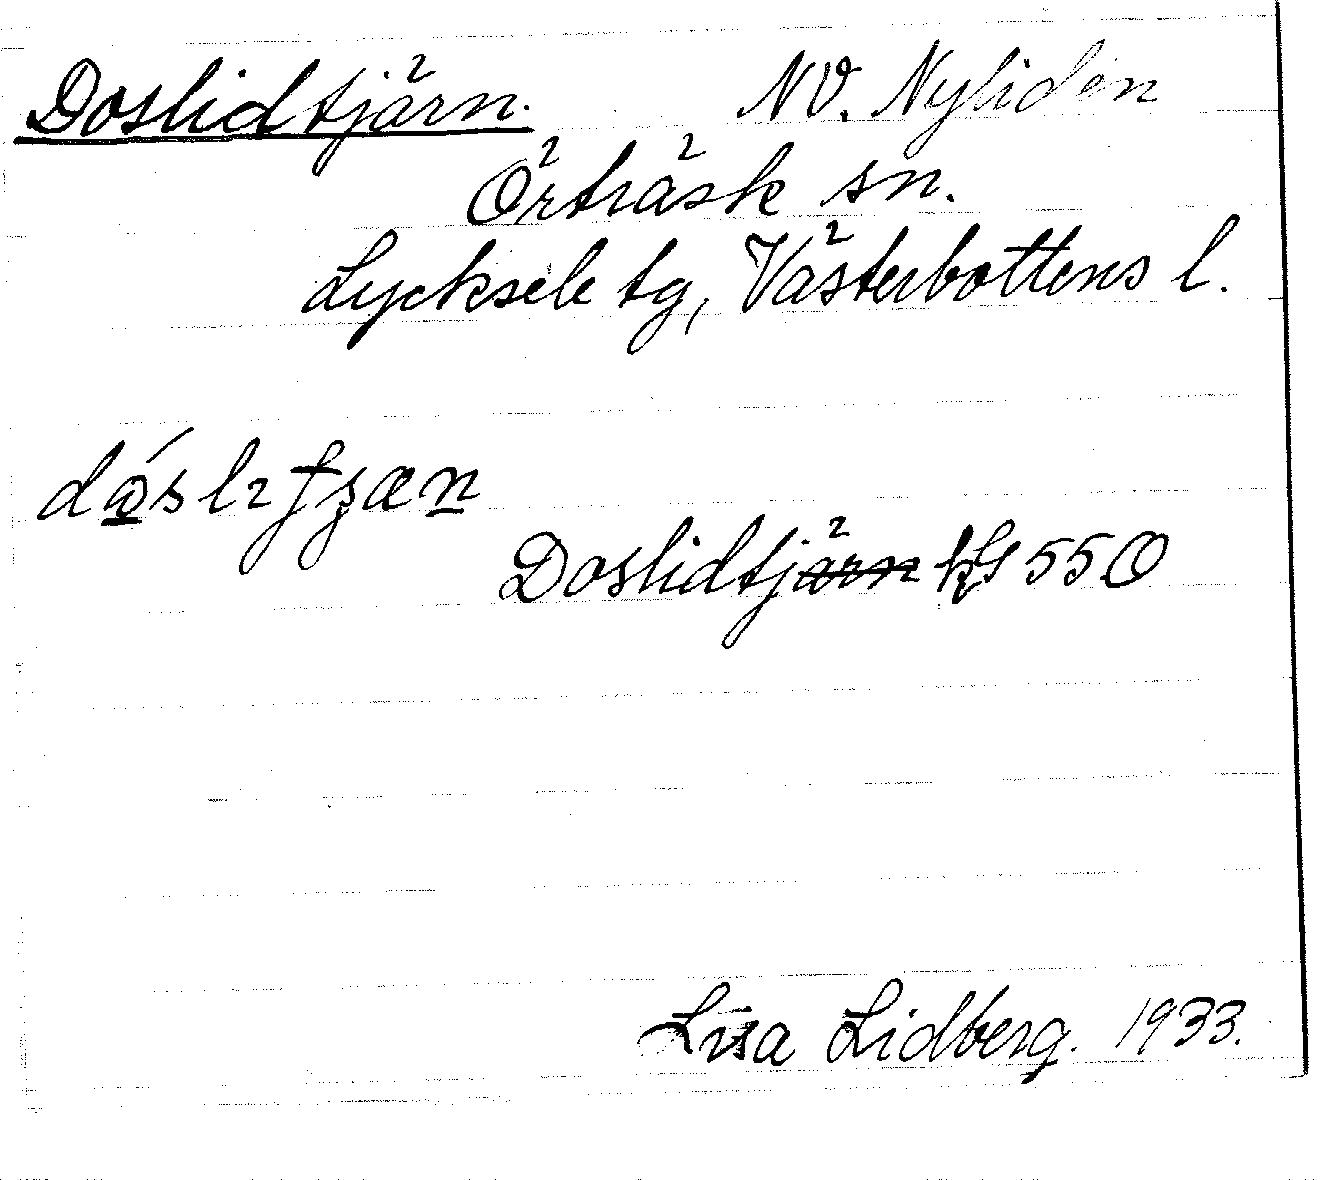 Doslidtjärn. NV. Nyliden
Örträsk sn.
Lycksele tg, Västerbottens l.
Doslidtj 550
Lisa Lidberg. 1933.